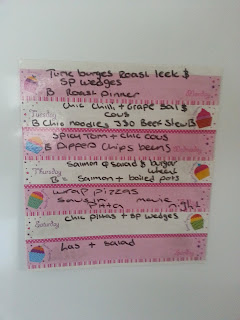 Tuna burges Roast leek &
SP wedges
B Roast Dinner
Monday
Chic Chilli + Grape Sal &
Tuesday
cous
B Chic noodles JJO Beef Stew B
Spicy Tom + chic cous
B Dippers Chips beans
Wednesday
Salmon Q Salad & Bulgar
Thursday
wheat
B = Salmon + boiled pots
wrap pizzas
movie
Pitta
night
Saturday
Chic pittas + SP wedges
Las + Salad